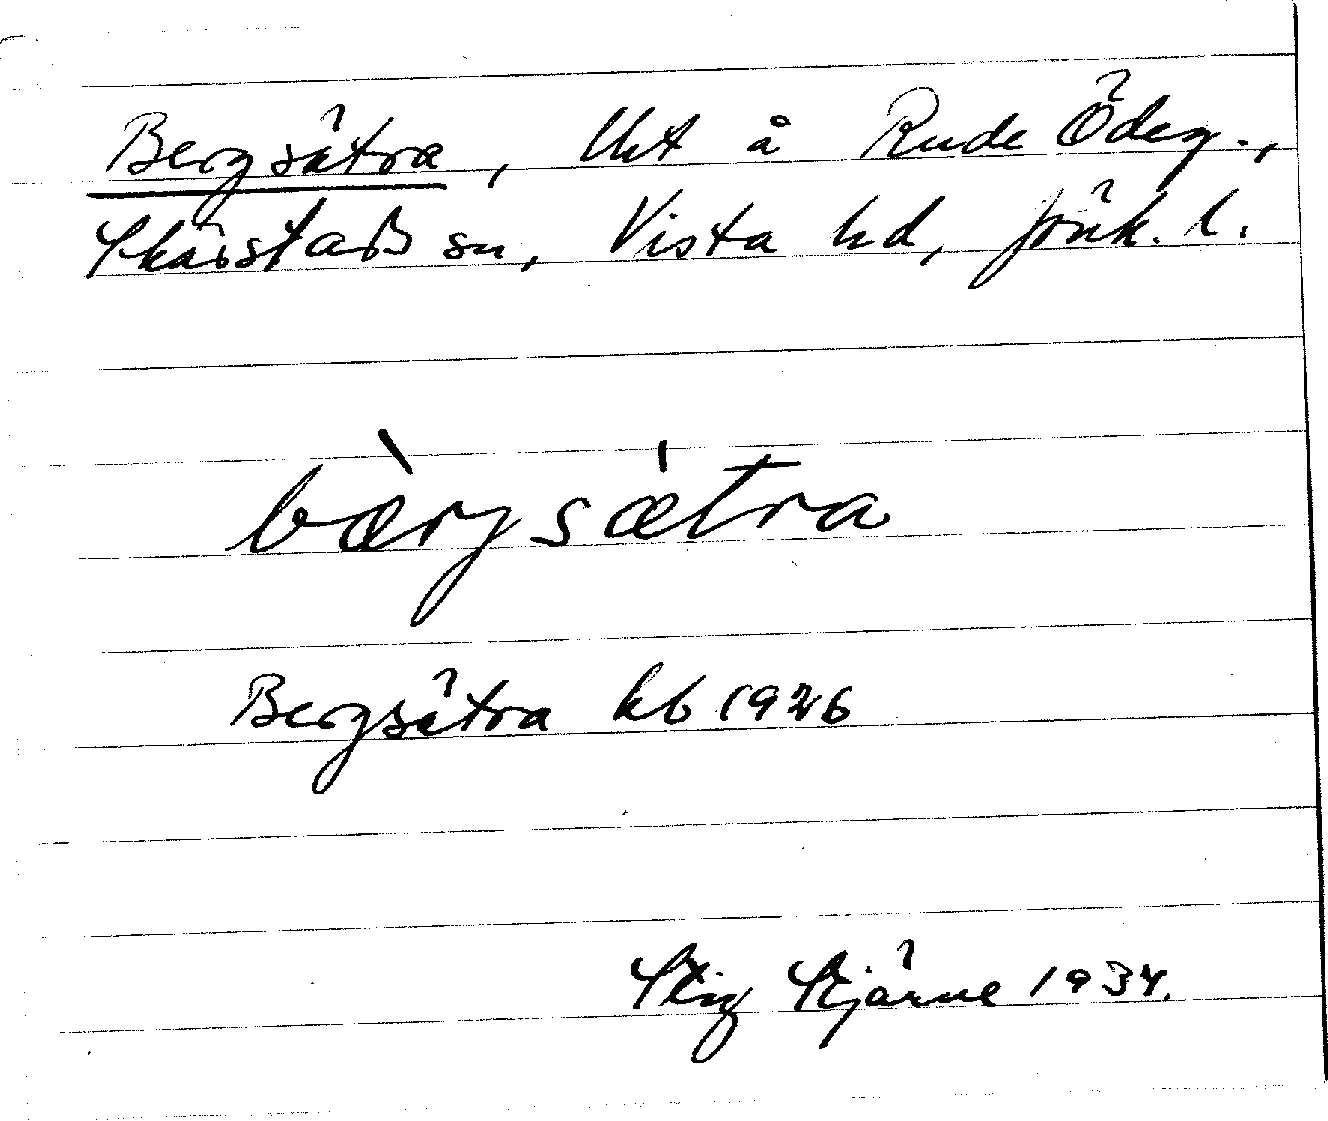 Bergsätra, Uxt å Rude Ödeg.,
Skärstads sn, Vista hd, Jönk. l.
bærjsætra
Bergsätra kb 1926
Stig Stjärne 1934.